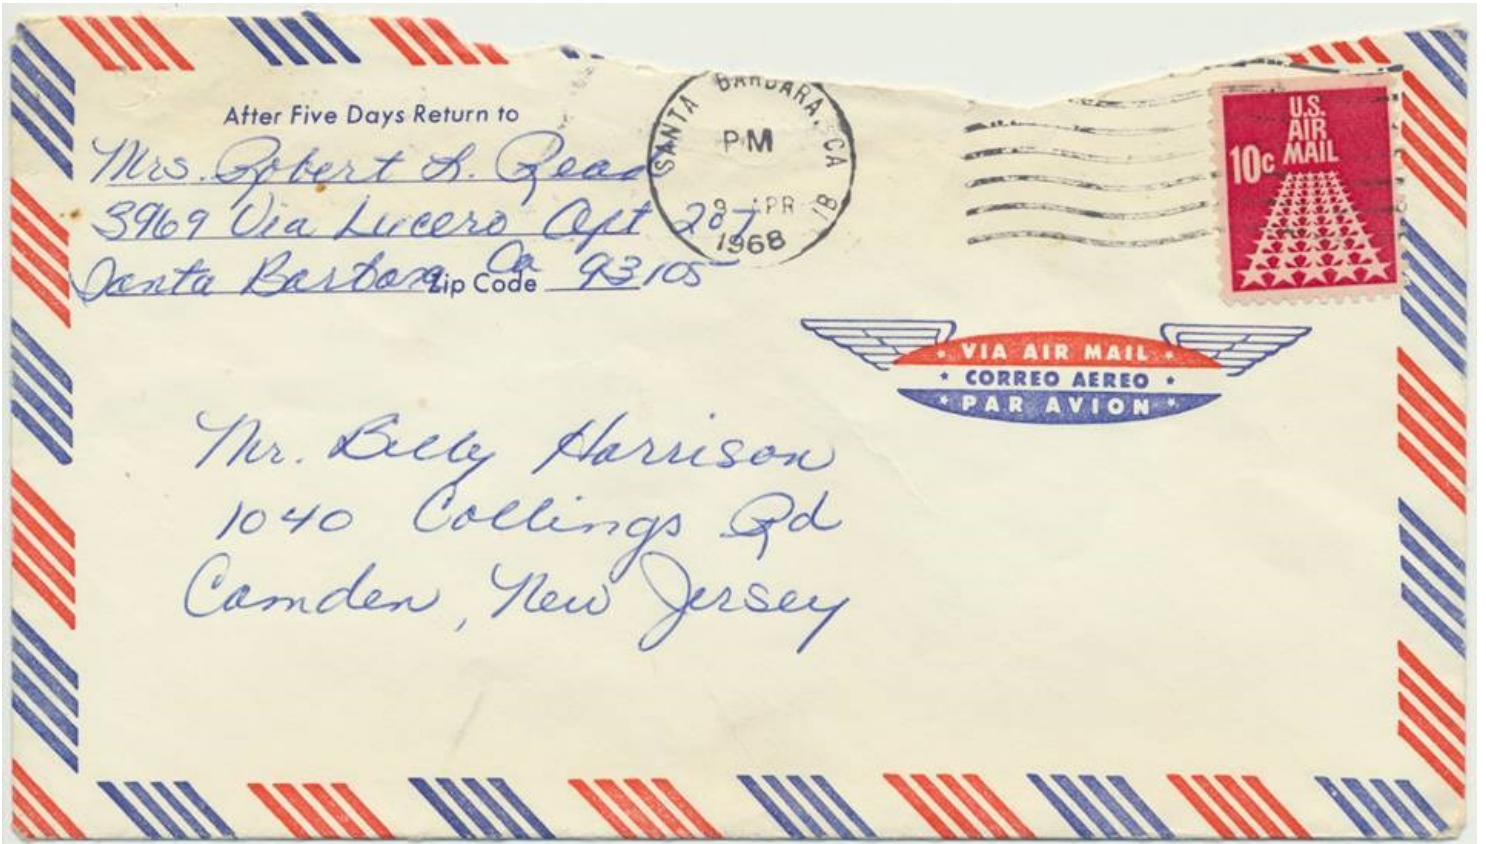 After Five Days Return to
Mrs. Robert L. Read
3969 Via Lucero Apt 207
Santa Barbara Ca Zip Code 93105
SANTA BARBARA, CA
PM
9 APR
1968
1B
U.S.
AIR
MAIL
10c
VIA AIR MAIL
CORREO AEREO
PAR AVION
Mr. Billy Harrison
1040 Collings Rd
Camden, New Jersey